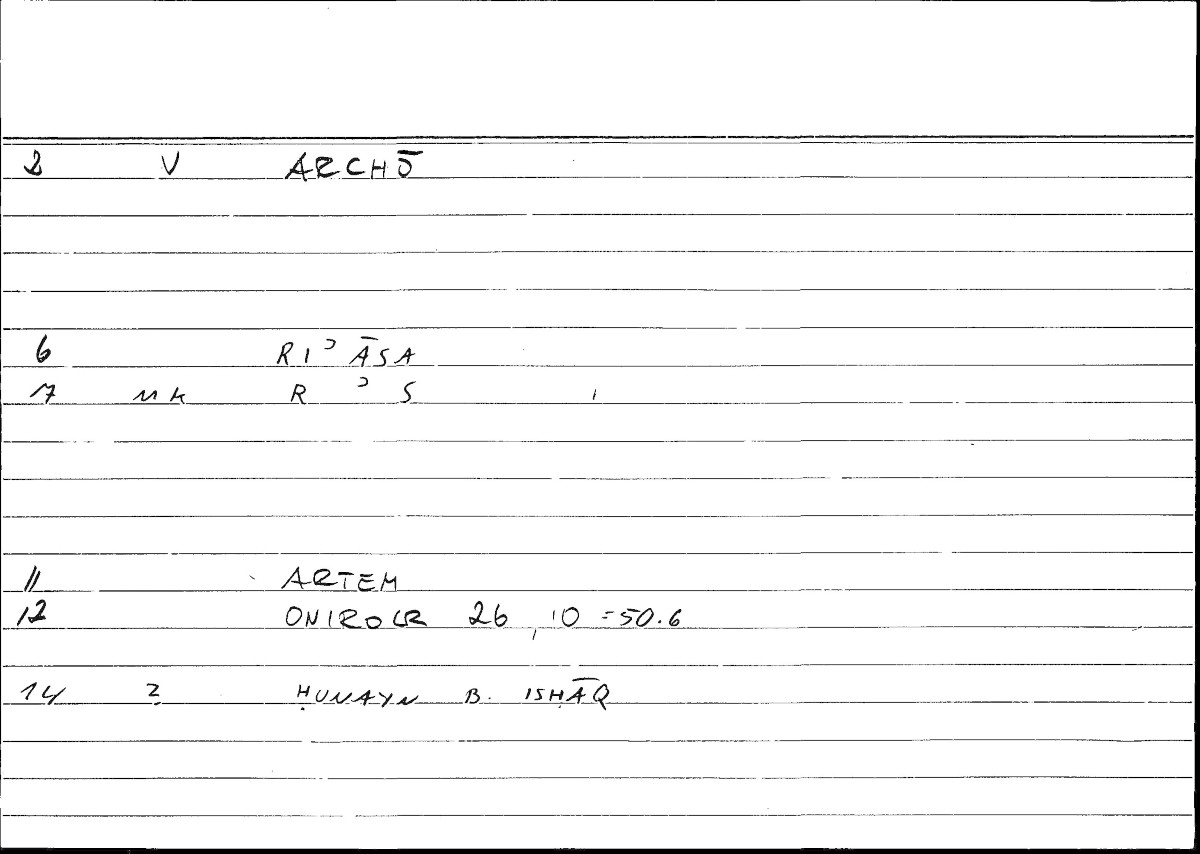 2 V ARCHŌ
6 RIʾĀSA
7 MK R ʾ S
11 ARTEM
12 ONIROCR 26, 10 = 50.6
14 2 ḤUNAYN B. ISḤĀQ